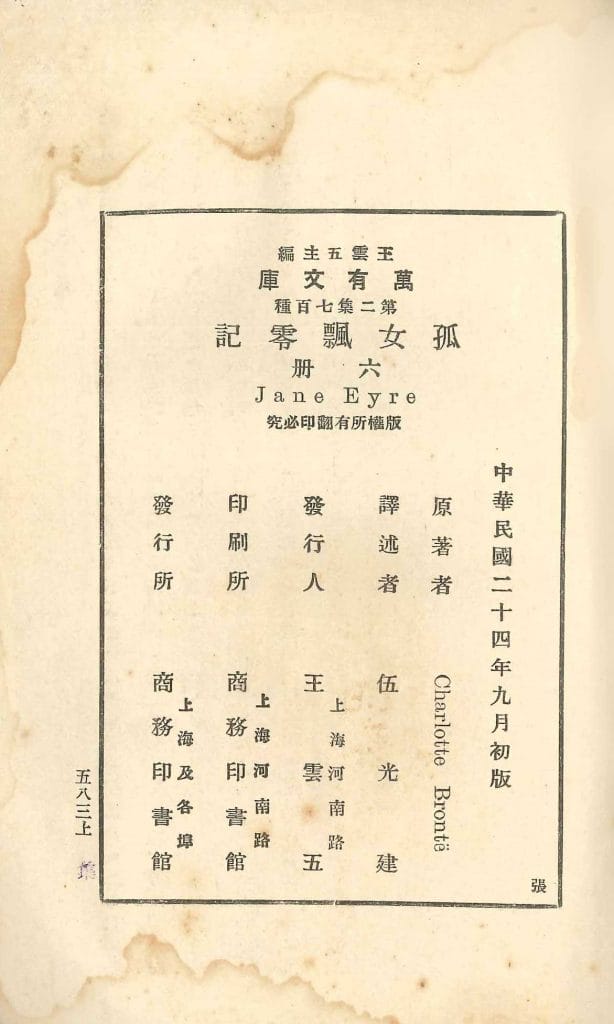 王雲五主編
萬有文庫
第二集七百種
孤女飄零記
六冊
Jane Eyre
版權所有翻印必究
中華民國二十四年九月初版
原著者 Charlotte Brontë
譯述者 伍光建
發行人 王雲五
上海河南路
印刷所 商務印書館
上海河南路
發行所 商務印書館
上海及各埠
張
五八三上